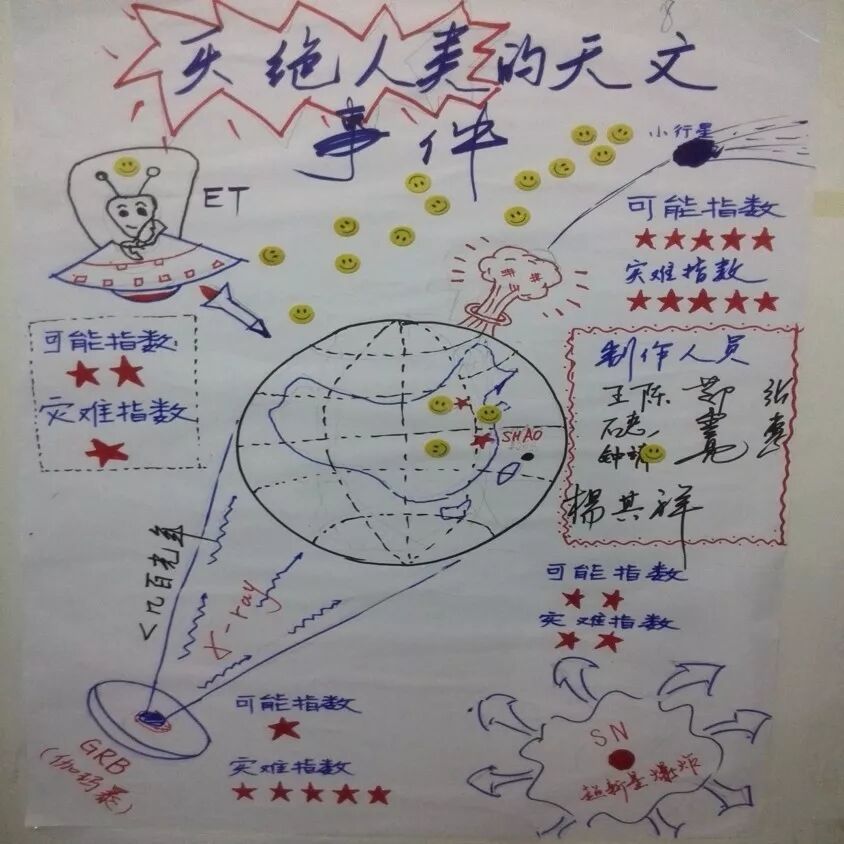 灭绝人类的天文
事件
小行星
ET
可能指数
灾难指数
可能指数
灾难指数
制作人员
王陈
杨其祥
SHAO
<几百光年
X-ray
可能指数
灾难指数
可能指数
灾难指数
GRB
(伽玛暴)
SN
超新星爆炸
8